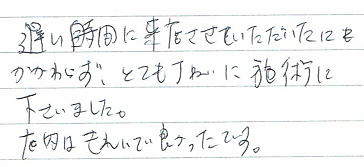 遅い時間に来店させていただいたにも
かかわらず、とても丁ねいに施術に
下さいました。
店内はきれいで良かったです。